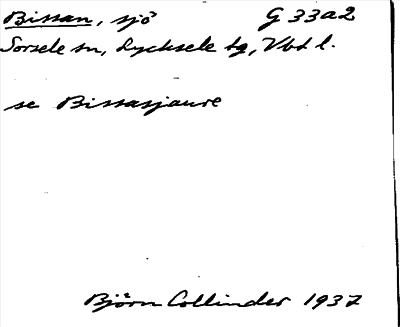 Bissan, sjö G 33a2
Sorsele sn, Lycksele tg, Vbt l.
se Bissasjaure
Björn Collinder 1937